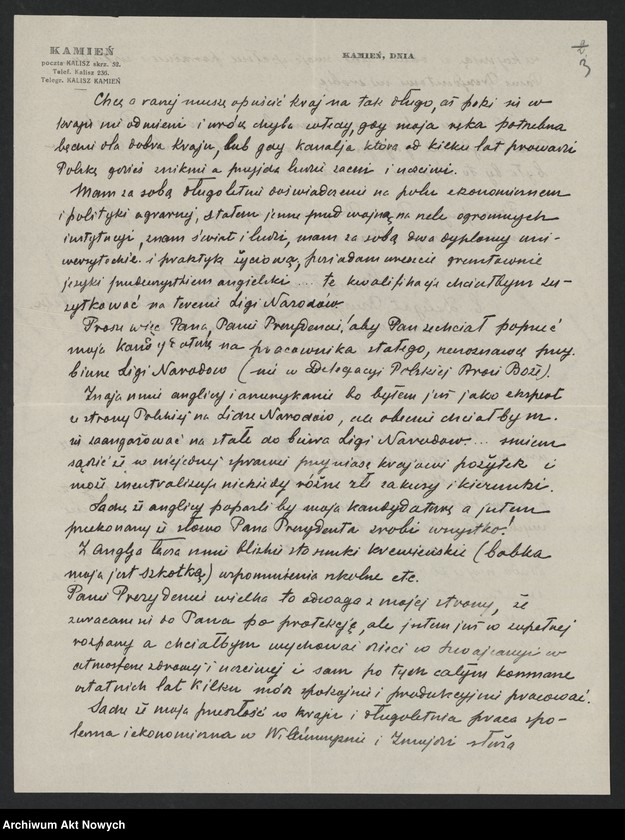 KAMIEŃ
poczta KALISZ skrz. 52.
Telef. Kalisz 236.
Telegr. KALISZ KAMIEŃ
KAMIEŃ, DNIA
2
3
Chcą a raczej muszę opuścić kraj na tak długo, aż póki się w
kraju nie odmieni i wrócę chyba wtedy, gdy moja ręka potrzebna
będzie dla dobra kraju, lub gdy kanalja która od kilku lat prowadzi
Polskę gdzieś zniknie a przyjdą ludzie zacni i uczciwi.
Mam za sobą długoletnie doświadczenie na polu ekonomicznem
i polityki agrarnej, stałem jeszcze przed wojną na czele ogromnych
instytucyj, znam świat i ludzi, mam za sobą dwa dyplomy uni-
wersyteckie i praktykę życiową, posiadam wreszcie gruntownie
języki przedewszystkiem angielski ... te kwalifikacje chciałbym zu-
żytkować na terenie Ligi Narodów.
Proszę więc Pana, Panie Prezydencie! aby Pan zechciał poprzeć
moją kandydaturę na pracownika stałego, rzeczoznawcę przy
biurze Ligi Narodów (nie w Delegacyi Polskiej Broń Boże).
Znają mnie anglicy i amerykanie bo byłem już jako ekspert
ze strony Polskiej na Lidze Narodów, ale obecnie chciałbym
się zaangażować na stałe do biura Ligi Narodów... śmiem
sądzić że w niejednej sprawie przyniosę krajowi pożytek i
może zneutralizuję niekiedy różne złe zakusy i kierunki.
Sądzę że anglicy poparli by moją kandydaturę a jestem
przekonany że słowo Pana Prezydenta zrobi wszystko!
Z Anglją łączą mnie bliskie stosunki krewieńskie (babka
moja jest szkotką) wspomnienia szkolne etc.
Panie Prezydencie wielka to odwaga z mojej strony, że
zwracam się do Pana po protekcję, ale jestem już w zupełnej
rozpaczy a chciałbym wychować dzieci w Szwajcaryi w
atmosferze zdrowej i uczciwej i sam po tych całym koszmarze
ostatnich lat kilku móc spokojnie i produkcyjnie pracować.
Sądzę że moja przeszłość w kraju i długoletnia praca spo-
łeczna i ekonomiczna w Wileńszczyźnie i Żmujdzi służą
Archiwum Akt Nowych